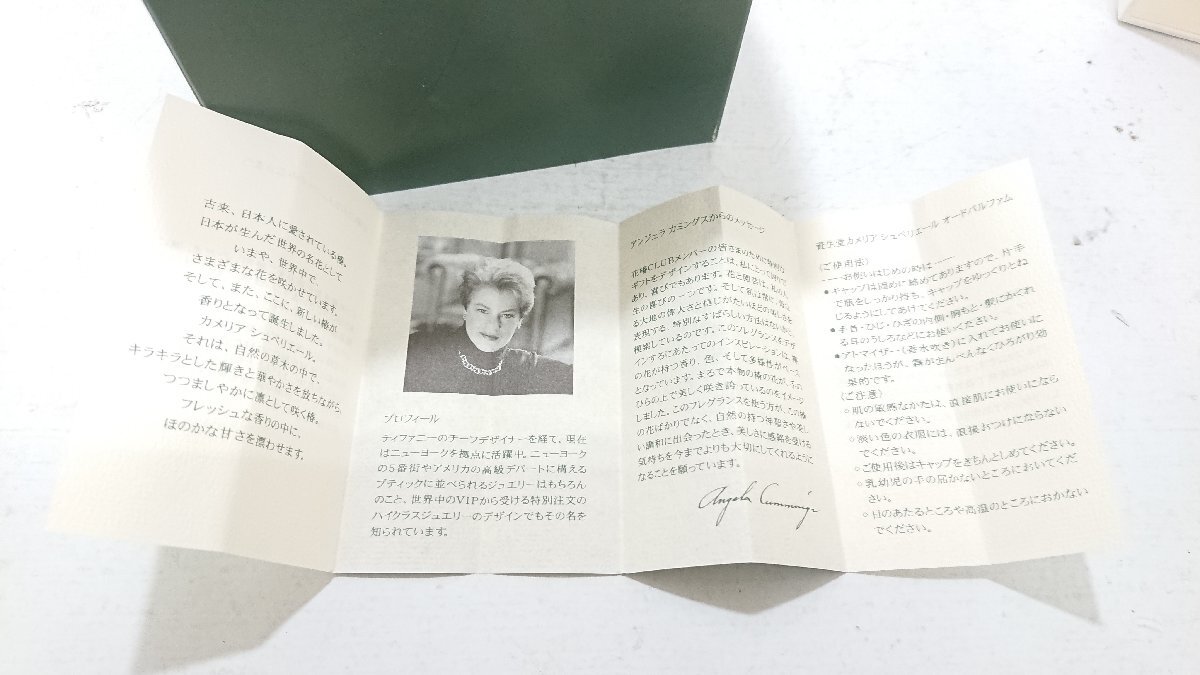 古来、日本人に愛されている椿。
日本が生んだ世界の名花として
いまや、世界中で、
さまざまな花を咲かせています。
そして、また、ここに、新しい椿が
香りとなって誕生しました。
カメリア シュペリエール。
それは、自然の草木の中で、
キラキラとした輝きと華やかさを放ちながら、
つつましやかに凛として咲く椿。
フレッシュな香りの中に、
ほのかな甘さを漂わせます。
プロフィール
ティファニーのチーフデザイナーを経て、現在
はニューヨークを拠点に活躍中。ニューヨーク
の5番街やアメリカの高級デパートに構える
ブティックに並べられるジュエリーはもちろん
のこと、世界中のVIPから受ける特別注文の
ハイクラスジュエリーのデザインでもその名を
知られています。
アンジェラ カミングスからのメッセージ
花椿CLUBメンバーの皆さまのために特別な
ギフトをデザインすることは、私にとって
あり、喜びでもあります。花と
生の喜びの一つです。そして私は常に
る大地の偉大さと信じがたいほどの美しさを
表現する、特別なすばらしい方法はないかと
模索しているのです。このフレグランスをデザ
インするにあたってのインスピレーションは、椿
の花が持つ香り、色、そして多様性がベース
となっています。まるで本物の椿の花が、手の
ひらの上で美しく咲き誇っているのをイメージ
しました。このフレグランスを使う方が、この椿
の花ばかりでなく、自然の持つ
い調和に出会ったとき、美しさに感銘を受ける
気持ちを今までよりも大切にしてくれるように
なることを願っています。
Angela Cummings
資生堂カメリア シュペリエール オードパルファム
〈ご使用法〉
――お使いはじめの時は――
●キャップは固めに締めてありますので、片手
で瓶をしっかり持ち、キャップをゆっくりとね
じるようにしてあけてください。
●手首・ひじ・ひざの内側・胸もと・髪にかくれ
る耳のうしろなどにお使いください。
●アトマイザー(香水吹き)に入れてお使いに
なったほうが、霧がまんべんなくひろがり効
果的です。
〈ご注意〉
○肌の敏感なかたは、直接肌にお使いになら
ないでください。
○淡い色の衣服には、直接おつけにならない
でください。
○ご使用後はキャップをきちんとしめてください。
○乳幼児の手の届かないところにおいてくだ
さい。
○日のあたるところや高温のところにおかない
でください。